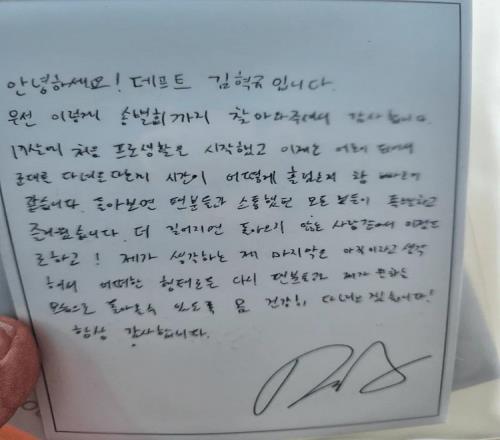 안녕하세요! 데프트 김혁규입니다.
우선 이렇게 송별회까지 찾아와주셔서 감사합니다.
17살에 처음 프로생활을 시작했고 이제는 어른이 되어서
군대를 다녀온다는지 시간이 어떻게 흘렀는지 참 빠르거
같습니다. 돌아보면 팬분들과 소통했던 모든 부분들이 특별하고
즐거웠습니다. 더 길어지면 돌아오지 않는 사람같아서 이정도
로하고! 제가 생각하는 제 마지막은 아직이라고 생각
하여 어떠한 형태로든 다시 팬분들과 제가 원하는
모습으로 돌아올수 있도록 몸 건강히 다녀오겠습니다!
항상 감사합니다.